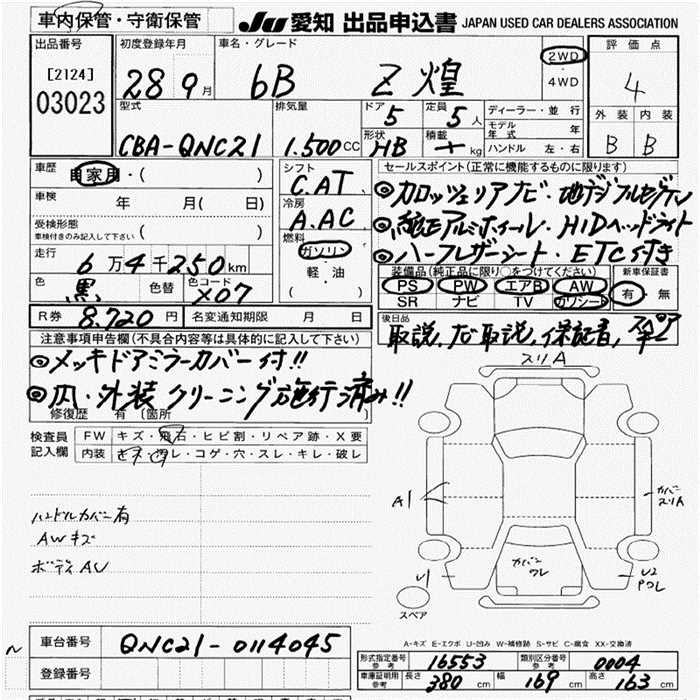 車内保管・守衛保管
JU 愛知 出品申込書 JAPAN USED CAR DEALERS ASSOCIATION
出品番号
[2124]
03023
初度登録年月
28 9月
車名・グレード
bB Z 煌
2WD
・
4WD
評価点
4
外装 内装
B B
型式
CBA-QNC21
排気量
1.500cc
ドア
5
定員
5人
形状
HB
積載
kg
ディーラー・並行
モデル年式 年
ハンドル 左・右
車歴
自家用・( )
車検
年 月( 日)
受検形態
車検付きのみ記入して下さい ( )
走行
6万4千250km
色
黒
色替
色コード
X07
R券 8.720円
名変通知期限 月 日
シフト
C.AT
冷房
A.AC
燃料
ガソリン
・
軽・油
( )
セールスポイント(正常に機能するものに限ります)
◎カロッツェリアナビ・地デジフルセグTV
◎純正アルミホイール・HIDヘッドライト
◎ハーフレザーシート・ETC付き
装備品(純正品に限り○をつけてください)
PS PW エアB AW
SR ナビ TV カワシート
新車保証書
有・無
後日品
取説、ナビ取説、保証書、
注意事項申告欄(不具合内容等は具体的に記入して下さい)
◎メッキドアミラーカバー付!!
◎内・外装クリーニング施行済み!!
修復歴 有〔箇所 〕
検査員記入欄
FW キズ・飛石・ヒビ割・リペア跡・X要
内装 キズ・汚レ・コゲ・穴・スレ・キレ・破レ
ハンドルカバー有
AWキズ
ボディAU
スリA
A1
カバースリA
カバーワレ
U1
U2
スペア
A-キズ E-エクボ U-凹み W-補修跡 S-サビ C-腐食 XX-交換済
車台番号 QNC21-0114045
登録番号
形式指定番号参考 16553
類別区分番号参考 0004
車庫証明用参考 長さ 380cm 幅 169cm 高さ 163cm